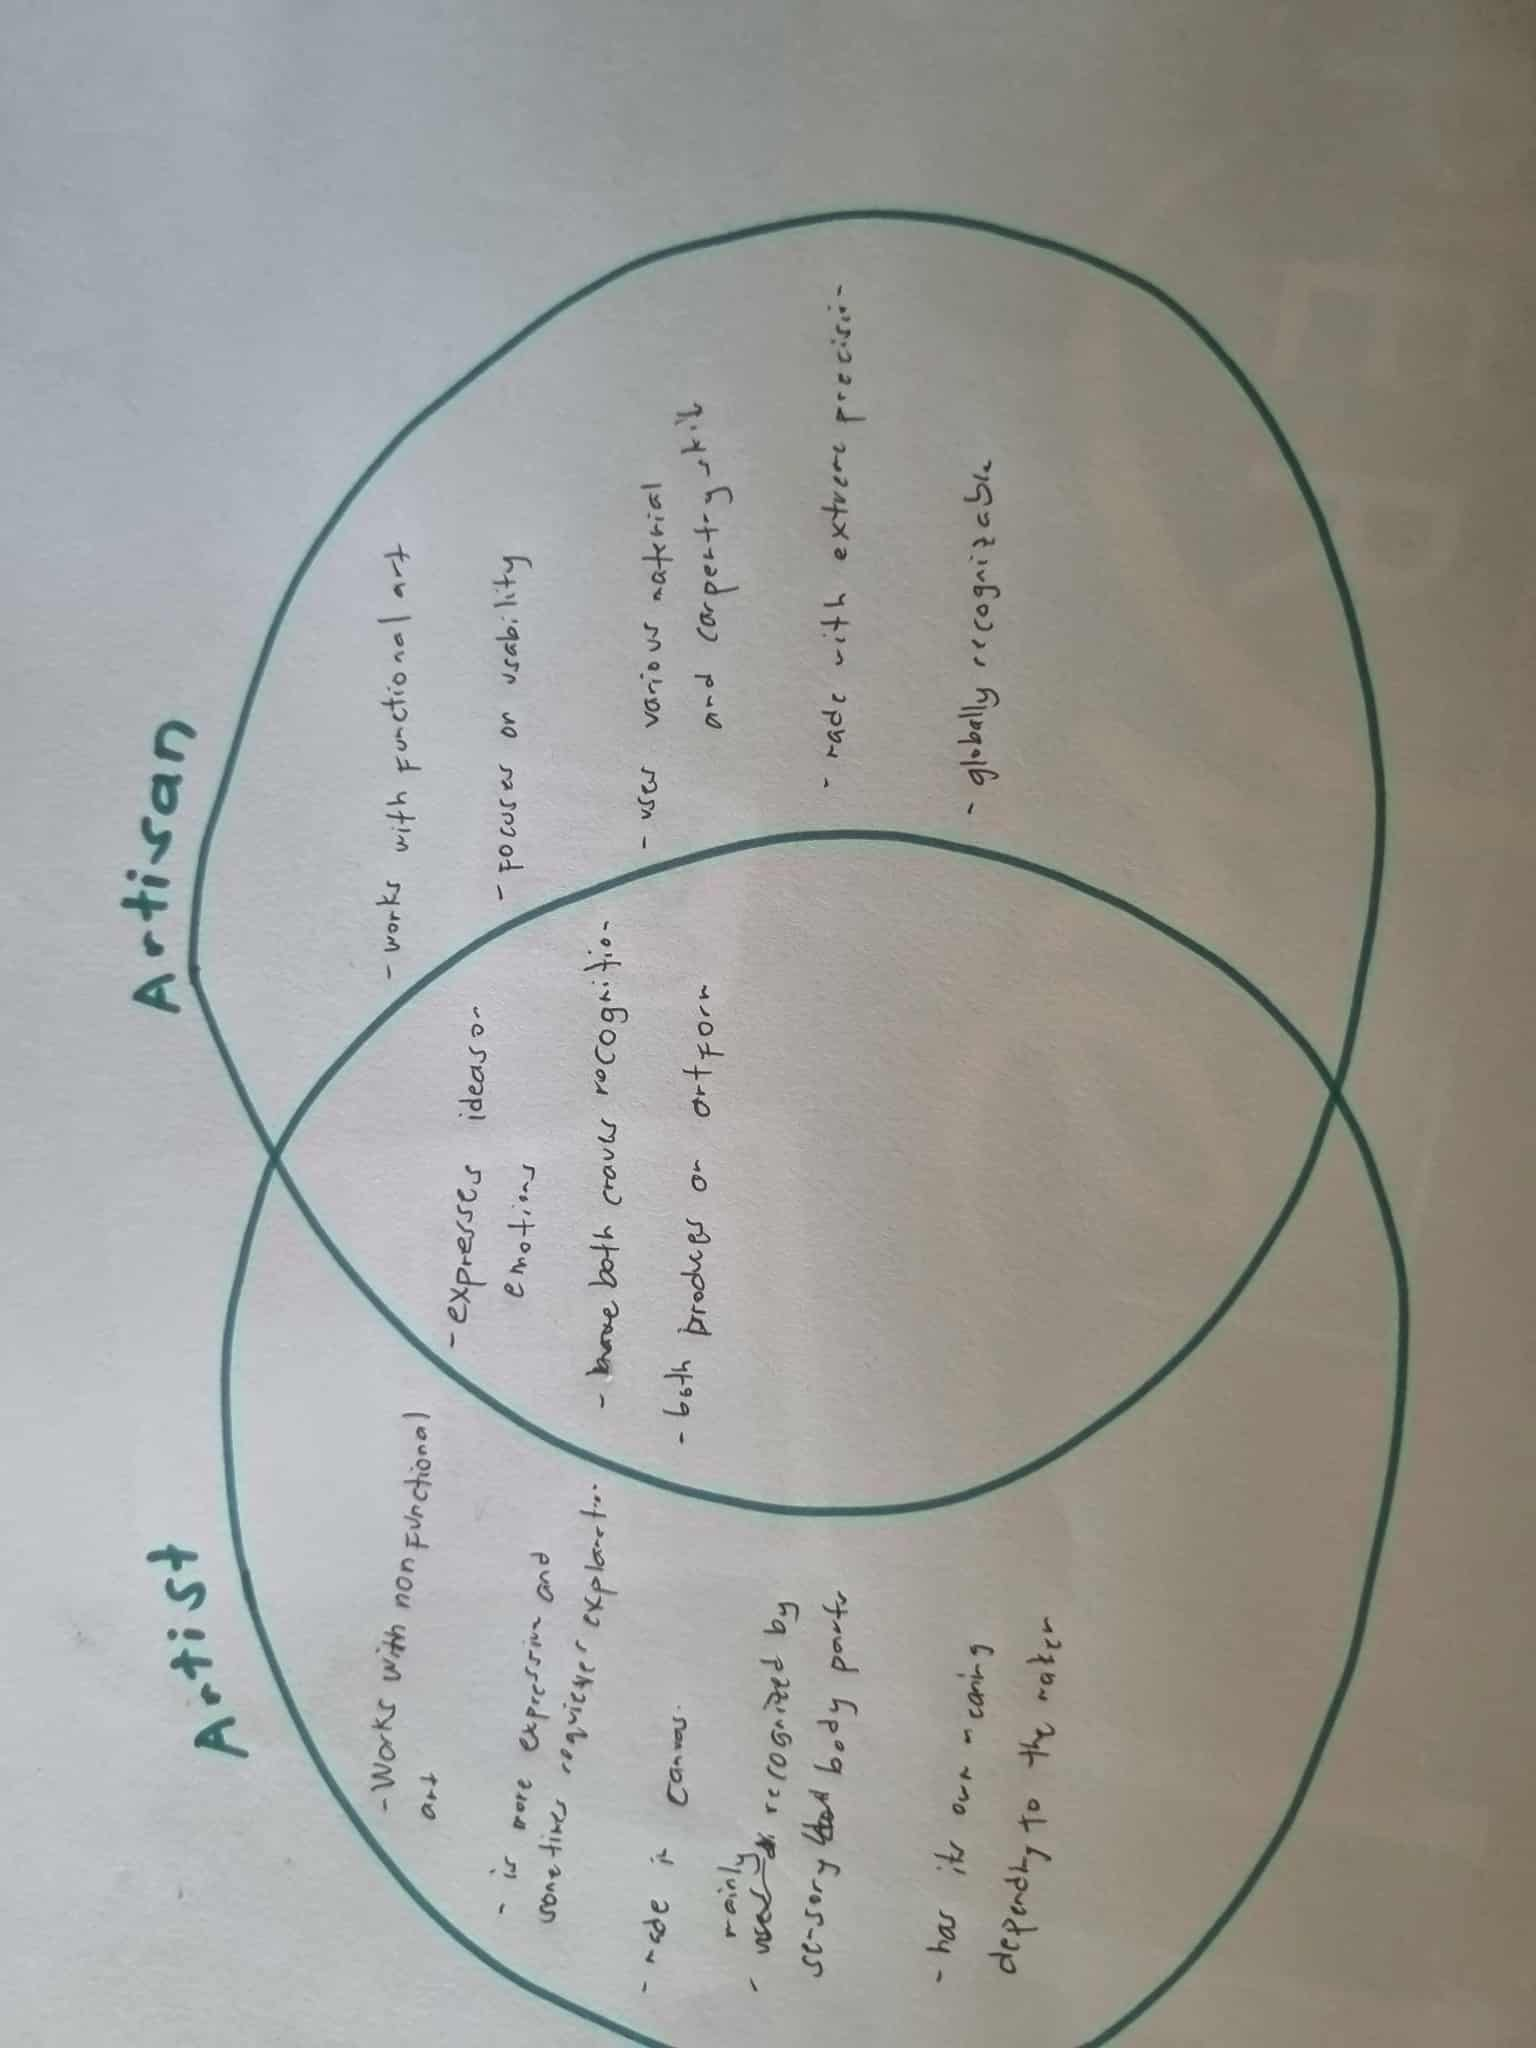 Artist
- Works with nonfunctional
art
- is more expressive and
sometimes requires explanation
- made in
canvas.
mainly
- recognized by
sensory body parts
- has its own meaning
depending to the maker
- expresses ideas or
emotions
- both craves recognition
- both produces an artform
Artisan
- works with functional art
- Focuses on usability
- uses various material
and carpentry skills
- made with extreme precision
- globally recognizable